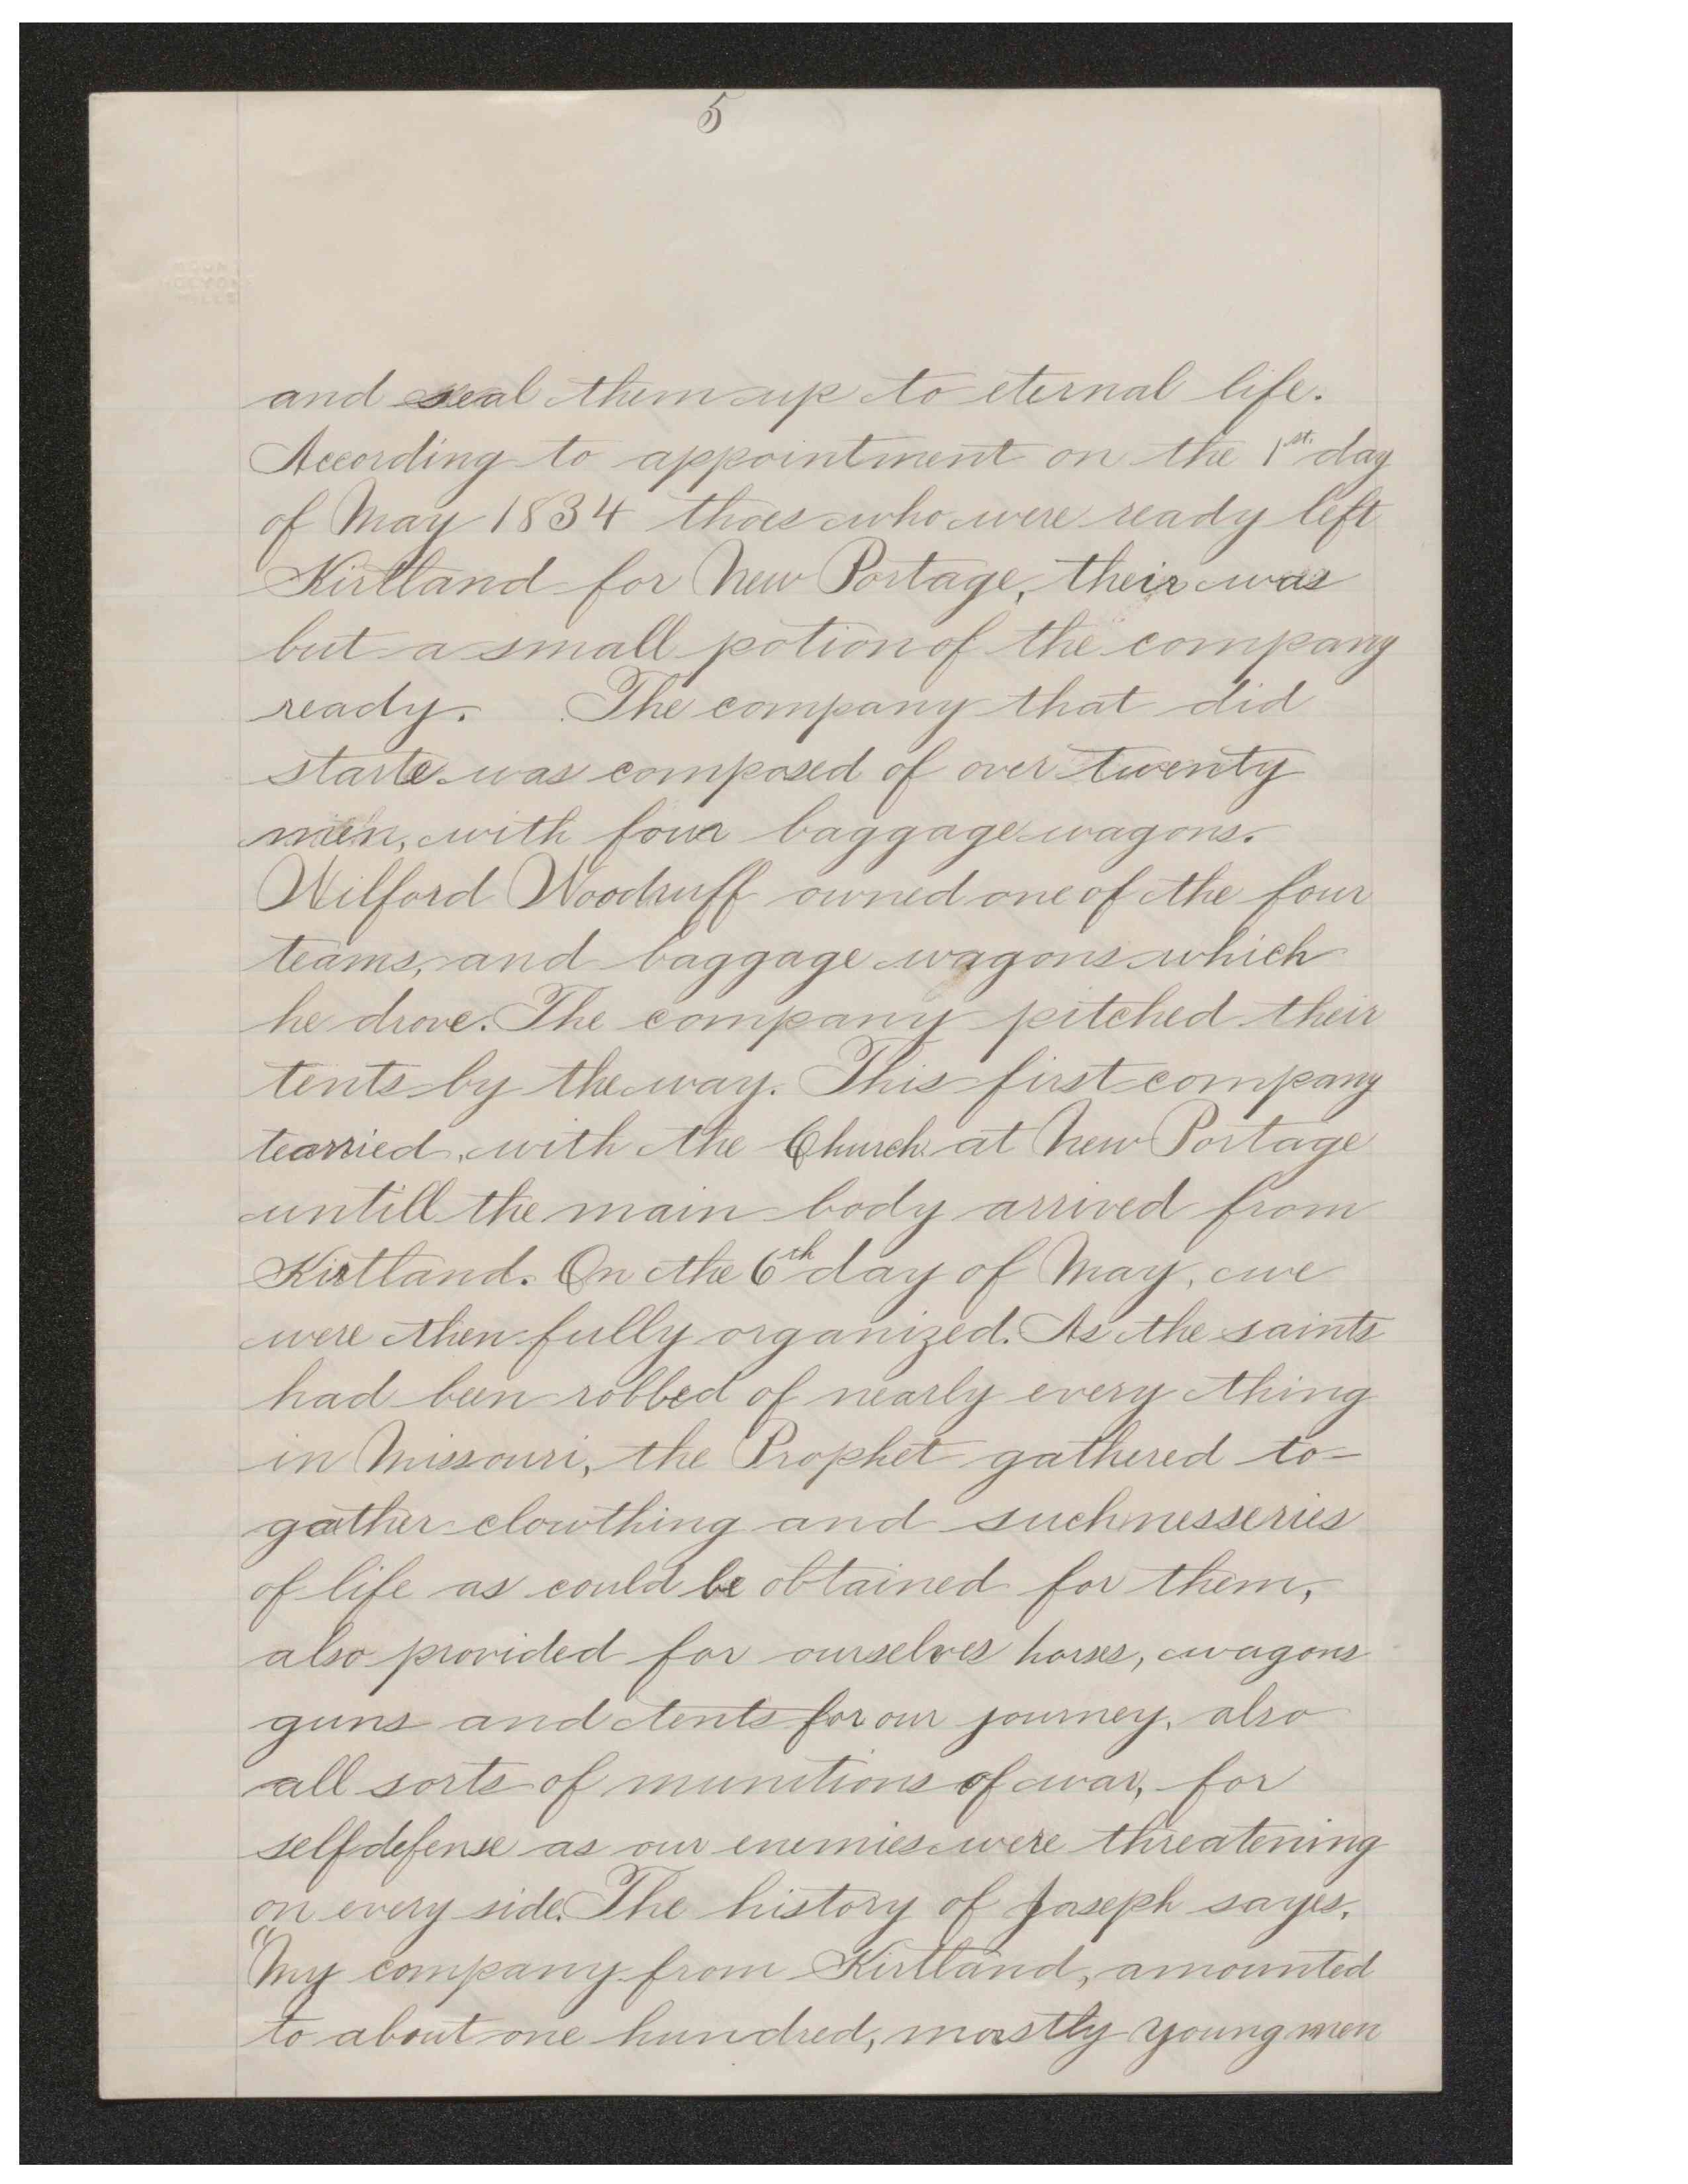 5
and seal them up to eternal life.
According to appointment on the 1st. day
of May 1834 thoes who were ready left
Kirtland for New Portage, their was
but a small potion of the company
ready. The company that did
starte was composed of over twenty
men, with four baggage wagons.
Wilford Woodruff owned one of the four
teams, and baggage wagons which
he drove. The company pitched their
tents by the way. This first company
tearried, with the Church at New Portage
untill the main body arrived from
Kirtland. On the 6th day of May, we
were then fully organized. As the saints
had been robbed of nearly every thing
in Missouri, the Prophet gathered to-
gather clowthing and such nesseries
of life as could be obtained for them,
also provided for ourselves horses, wagons
guns and tents for our journey, also
all sorts of munitions of war, for
selfdefense as our enemies were threatening
on every side. The history of Joseph sayes,
"My company from Kirtland, amounted
to about one hundred, mostly young men